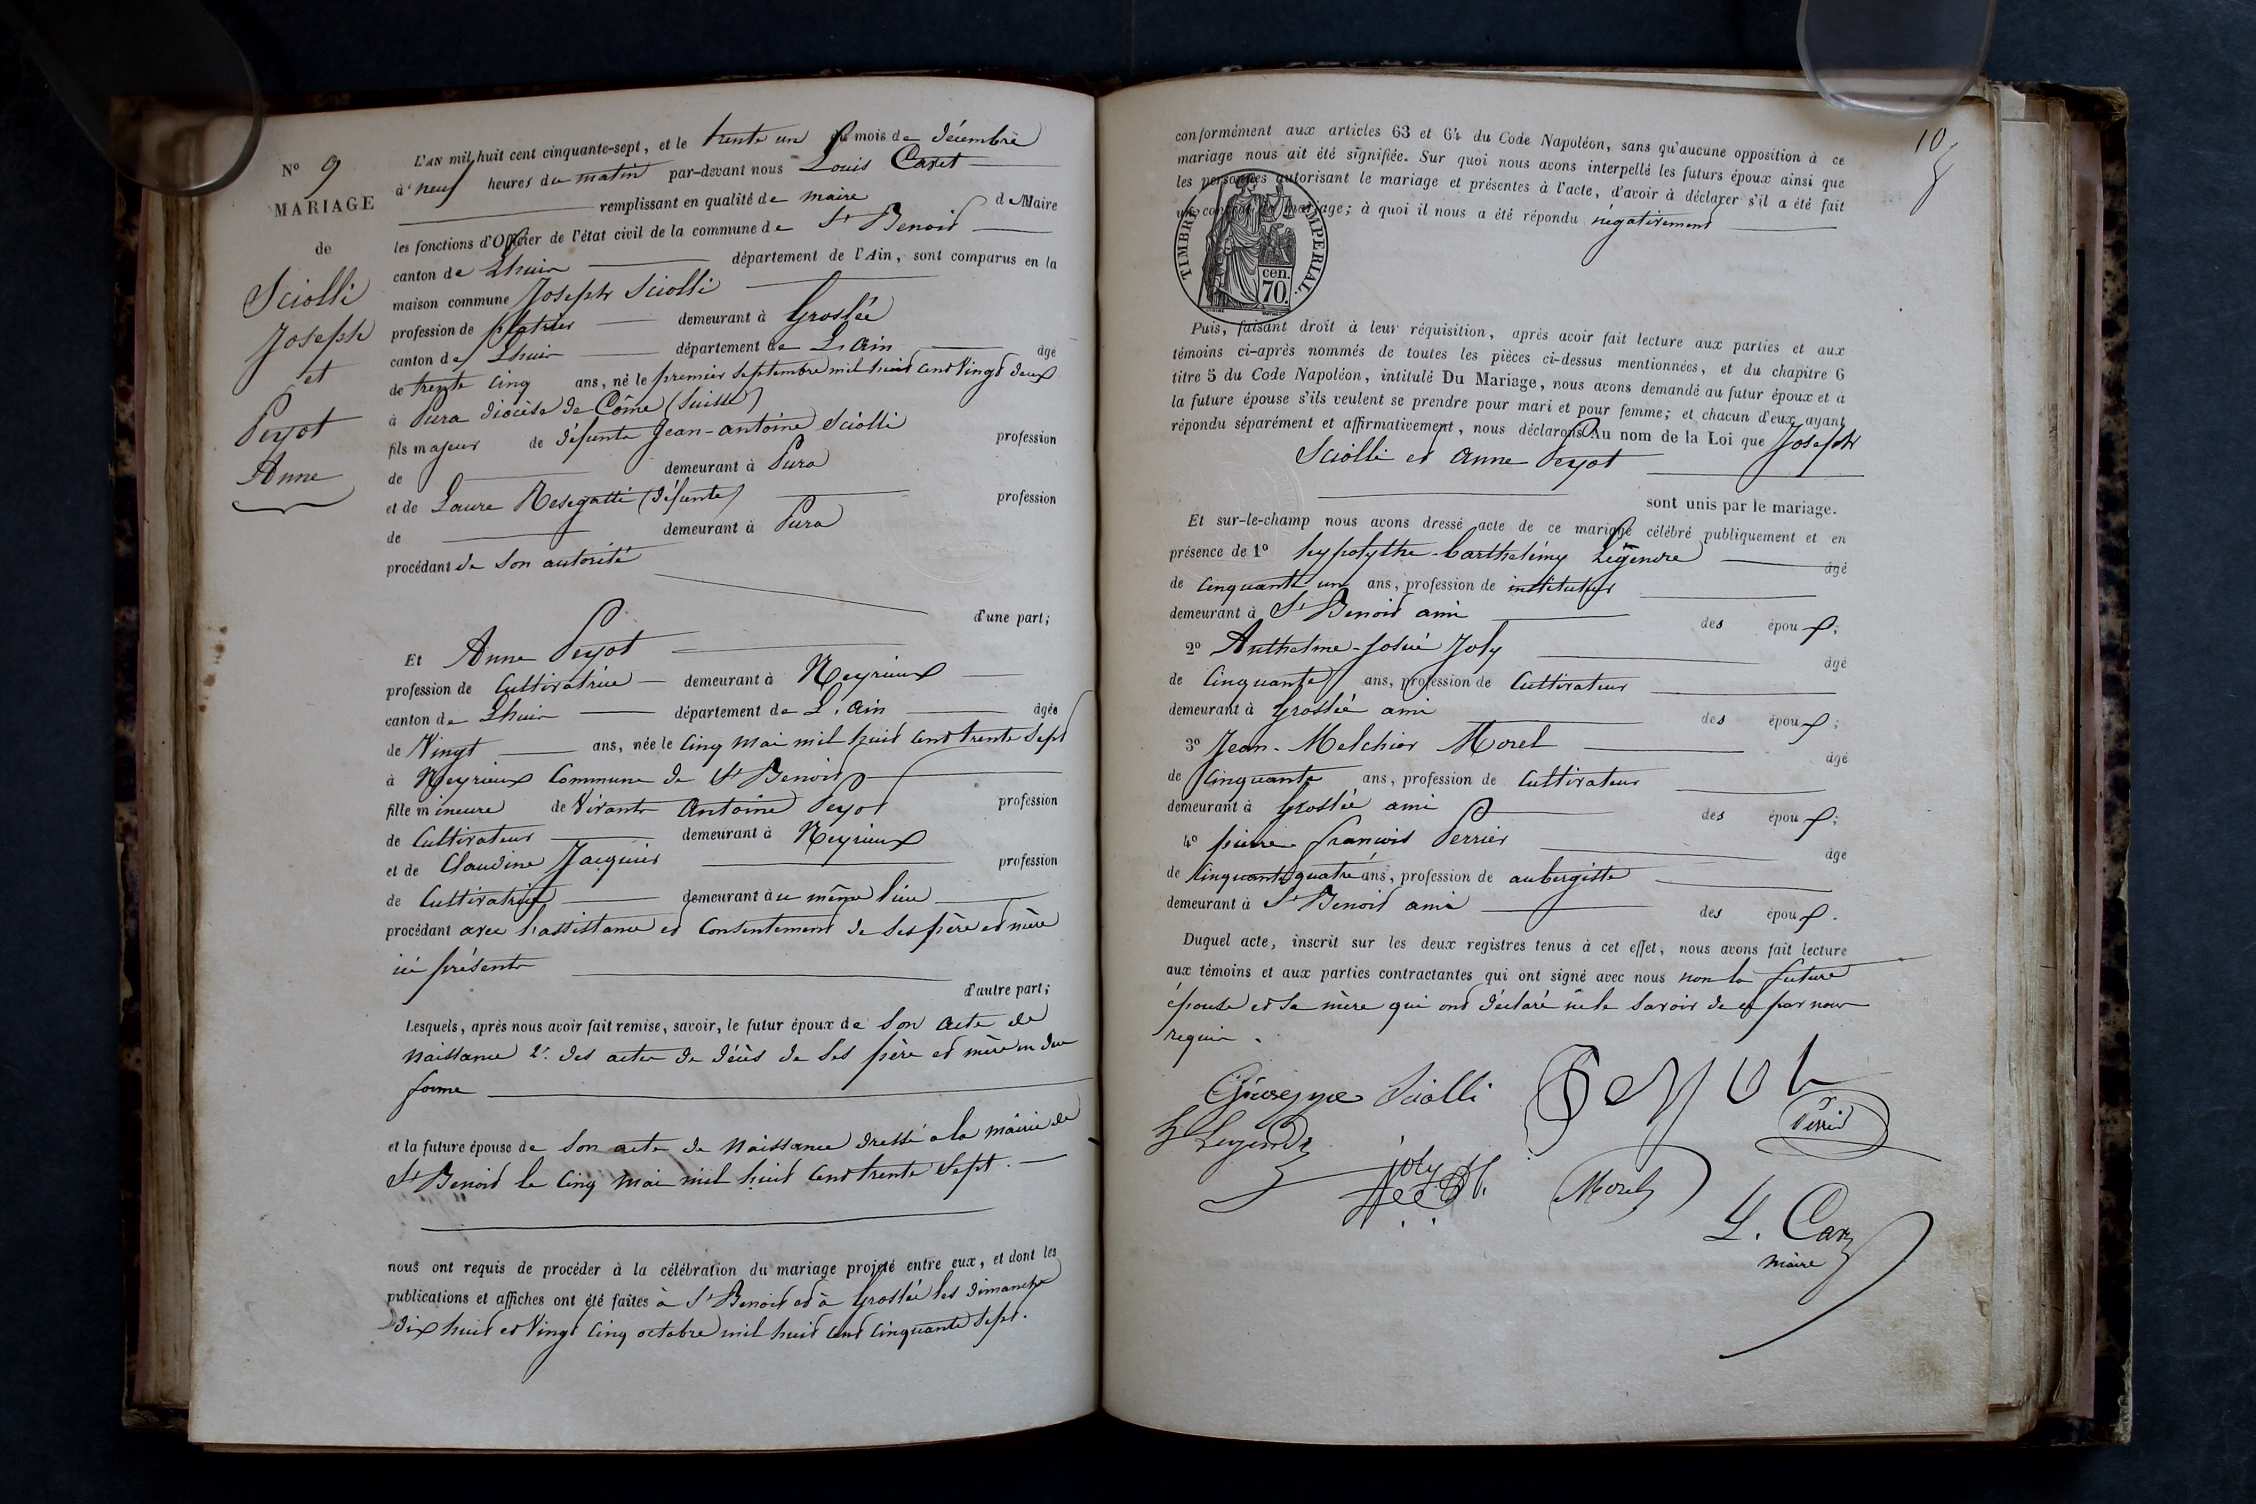 N° 9
MARIAGE
de
Sciolli
Joseph
et
Peyot
Anne
L'AN mil huit cent cinquante-sept, et le trente un du mois de décembre
à neuf heures du matin par-devant nous Louis Caret
remplissant en qualité de maire de Maire
les fonctions d'Officier de l'état civil de la commune de St Benoid
canton de Lhuis département de l'Ain, sont comparus en la
maison commune Joseph Sciolli
profession de platrier demeurant à Groslée
canton de Lhuis département de L'ain âgé
de trente cinq ans, né le premier septembre mil huit cent vingt deux
à Pura diocèse de Côme (Suisse)
fils majeur de défunts Jean-antoine Sciolli profession
de demeurant à Pura
et de Laure Resegatti (défunte) profession
de demeurant à Pura
procédant de son autorité
d'une part;
Et Anne Peyot
profession de Cultivatrice demeurant à Neyrieux
canton de Lhuis département de L'ain âgée
de Vingt ans, née le cinq mai mil huit cent trente sept
à Neyrieux Commune de St Benoid
fille mineure de vivants Antoine Peyot profession
de Cultivateur demeurant à Neyrieux
et de Claudine Jacquier profession
de Cultivatrice demeurant au même lieu
procédant avec l'assistance et consentement de ses père et mère
ici présents
d'autre part;
Lesquels, après nous avoir fait remise, savoir, le futur époux de son acte de
naissance 2° des actes de décès de ses père et mère en due
forme
et la future épouse de son acte de naissance dressé a la mairie de
St Benoid le cinq mai mil huit cent trente sept.
nous ont requis de procéder à la célébration du mariage projeté entre eux, et dont les
publications et affiches ont été faites à St Benoid et à Groslée les dimanche
dix huit et vingt cinq octobre mil huit cent cinquante sept.
10
conformément aux articles 63 et 64 du Code Napoléon, sans qu'aucune opposition à ce
mariage nous ait été signifiée. Sur quoi nous avons interpellé les futurs époux ainsi que
les personnes autorisant le mariage et présentes à l'acte, d'avoir à déclarer s'il a été fait
un contrat de mariage; à quoi il nous a été répondu négativement
TIMBRE IMPERIAL.
cen.
70.
Puis, faisant droit à leur réquisition, après avoir fait lecture aux parties et aux
témoins ci-après nommés de toutes les pièces ci-dessus mentionnées, et du chapitre 6
titre 5 du Code Napoléon, intitulé Du Mariage, nous avons demandé au futur époux et à
la future épouse s'ils veulent se prendre pour mari et pour femme; et chacun d'eux ayant
répondu séparément et affirmativement, nous déclarons Au nom de la Loi que Joseph
Sciolli et Anne Peyot
sont unis par le mariage.
Et sur-le-champ nous avons dressé acte de ce mariage célébré publiquement et en
présence de 1° hypolythe-barthelémy Legendre âgé
de cinquante un ans, profession de instituteur
demeurant à St Benoid ami des époux;
2° Anthelme-Josué Joly âgé
de Cinquante ans, profession de Cultivateur
demeurant à Groslée ami des époux;
3° Jean-Melchior Morel âgé
de Cinquante ans, profession de Cultivateur
demeurant à Groslée ami des époux;
4° pierre françois Perrier âge
de Cinquante quatre ans, profession de aubergiste
demeurant à St Benoid ami des époux.
Duquel acte, inscrit sur les deux registres tenus à cet effet, nous avons fait lecture
aux témoins et aux parties contractantes qui ont signé avec nous non la future
épouse et sa mère qui ont déclaré ne le savoir de ce par nous
requis.
Giuseppe Sciolli Peyot
Perrier
h Legendre
joly
Morel
L. Caret
maire